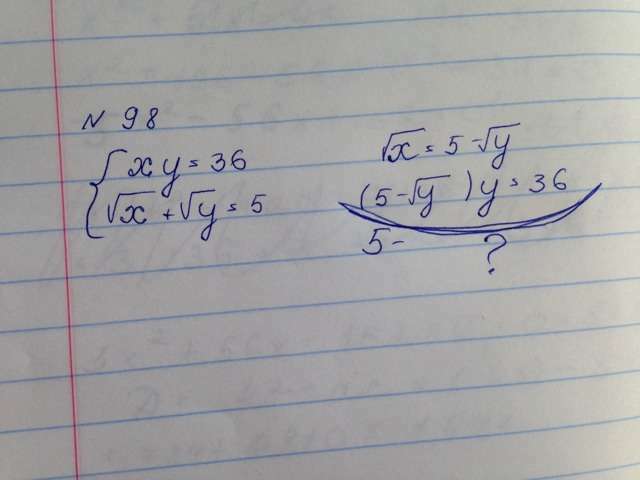 N 98
{ xy = 36
√x + √y = 5
√x = 5 - √y
(5 - √y ) y = 36
5 - ?